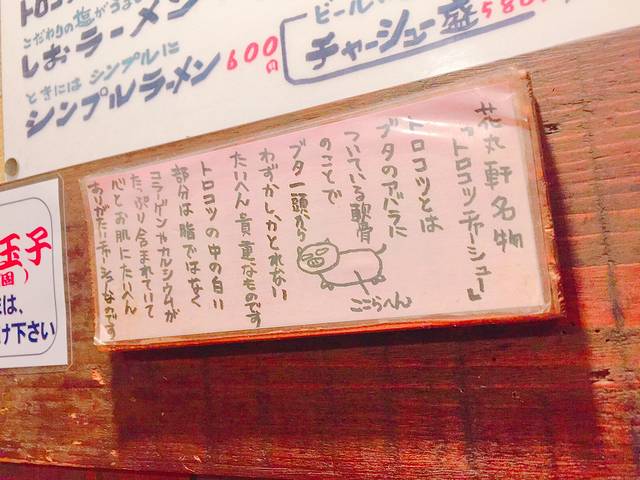 トロコツ
こだわりの塩が
しおラーメン
ときにはシンプルに
シンプルラーメン 600円
ビール
チャーシュー盛 580
玉子
は、
け下さい
花丸軒名物
「トロコツチャーシュー」
トロコツとは
ブタのアバラに
ついている軟骨
のことで
ブタ一頭から
わずかしかとれない
たいへん貴重なものです
トロコツの中の白い
部分は脂ではなく
コラーゲンやカルシウムが
たっぷり含まれていて
心とお肌にたいへん
ありがたーいチャーシューなのです
ここらへん